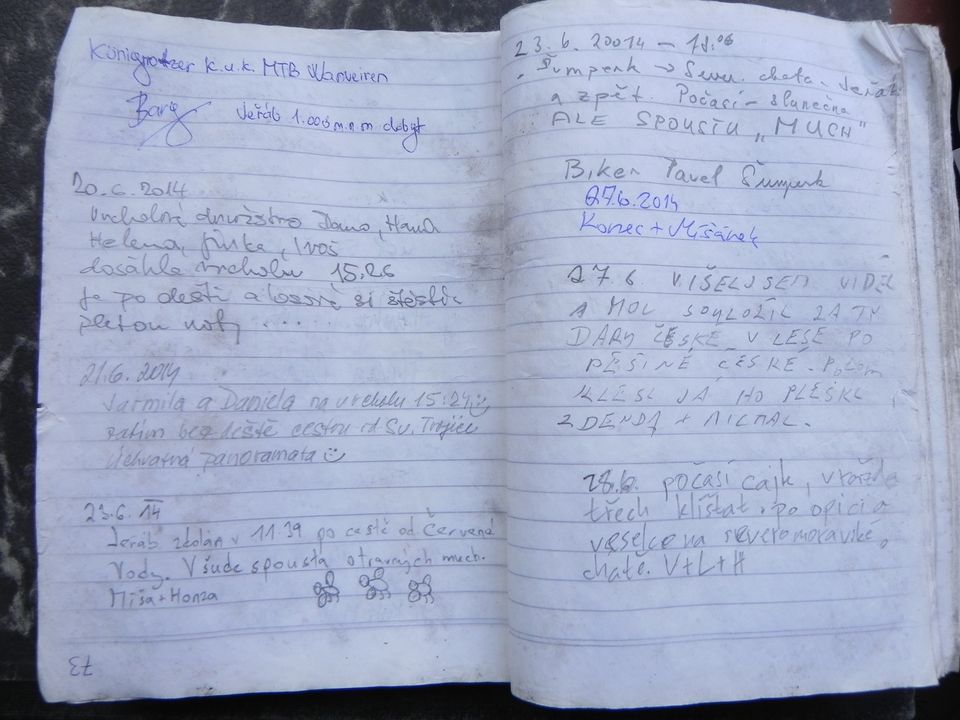 k.u.k. MTB
Jeřáb 1.003 m.n.m dobyt
20.6.2014
Vrcholové družstvo Hana
Helena, Jirka, Ivoš
dosáhla vrcholu 15,26
Je po dešti a
pletou nohy ....
21.6.2014
Jarmila a Daniela na vrcholu 15:24
zatím bez deště cestou od Sv. Trojice
Úchvatná panoramata
23.6.14
Jeřáb zdolán v 11:39 po cestě od Červené
Vody. Všude spousta otravných much.
Míša+Honza
73
23.6.20014 - 18:06
Šumperk → Seve. chata - Jeřáb
a zpět. Počasí - slunečno
ALE SPOUSTU „MUCH"
Biker Pavel Šumperk
27.6.2014
Konec + Mišánek
27 6. VIŠEL JSEM VIDĚL
A MOL
DARY ČESKÉ V LESE PO
PĚŠINĚ ČESKÉ.
KLESL JÁ HO
ZDENDA + MICHAL.
28.6. počasí cajk, vražda
třech klíšťat. po opici a
veselce na severomoravské
chatě. V+L+H